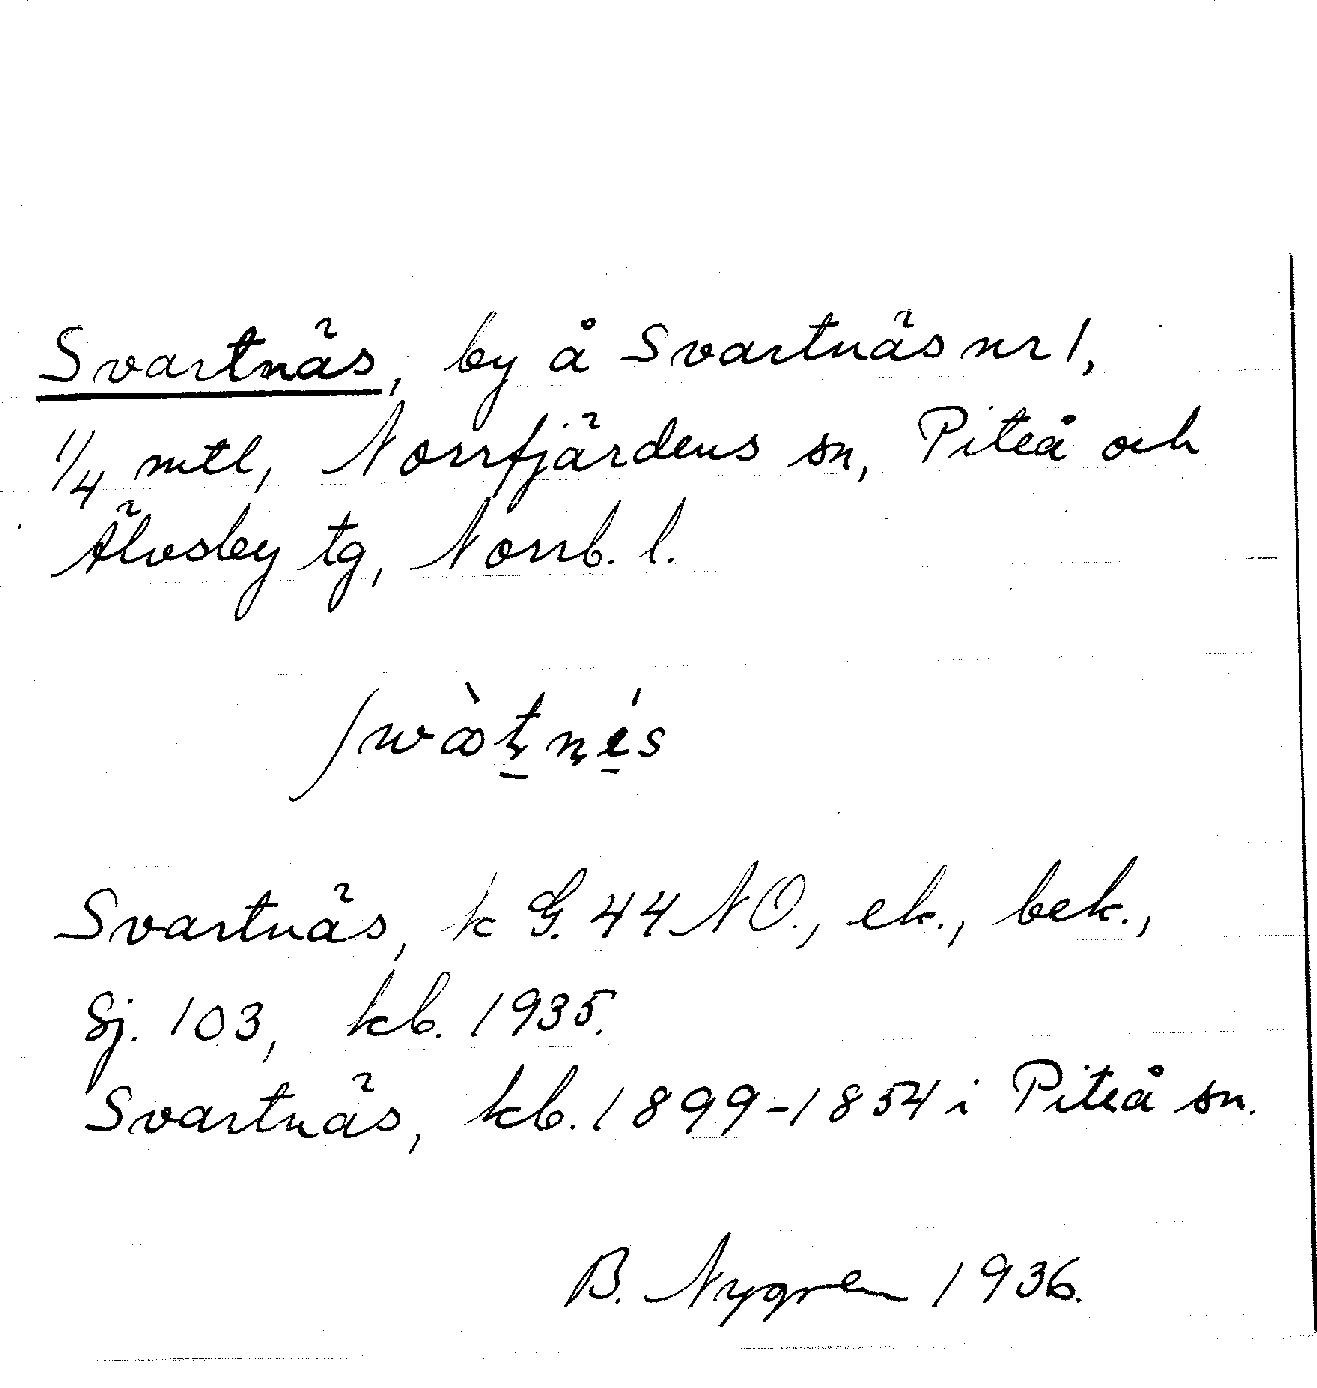 Svartnäs, by å Svartnäs nr 1,
1/4 mtl, Norrfjärdens sn, Piteå och
Älvsby tg, Norrb. l.
Svartnäs, k G. 44 NO., ek., bek.,
Sj. 103, kb. 1935.
Svartnäs, kb. 1899-1854 i Piteå sn.
B. Nygren 1936.